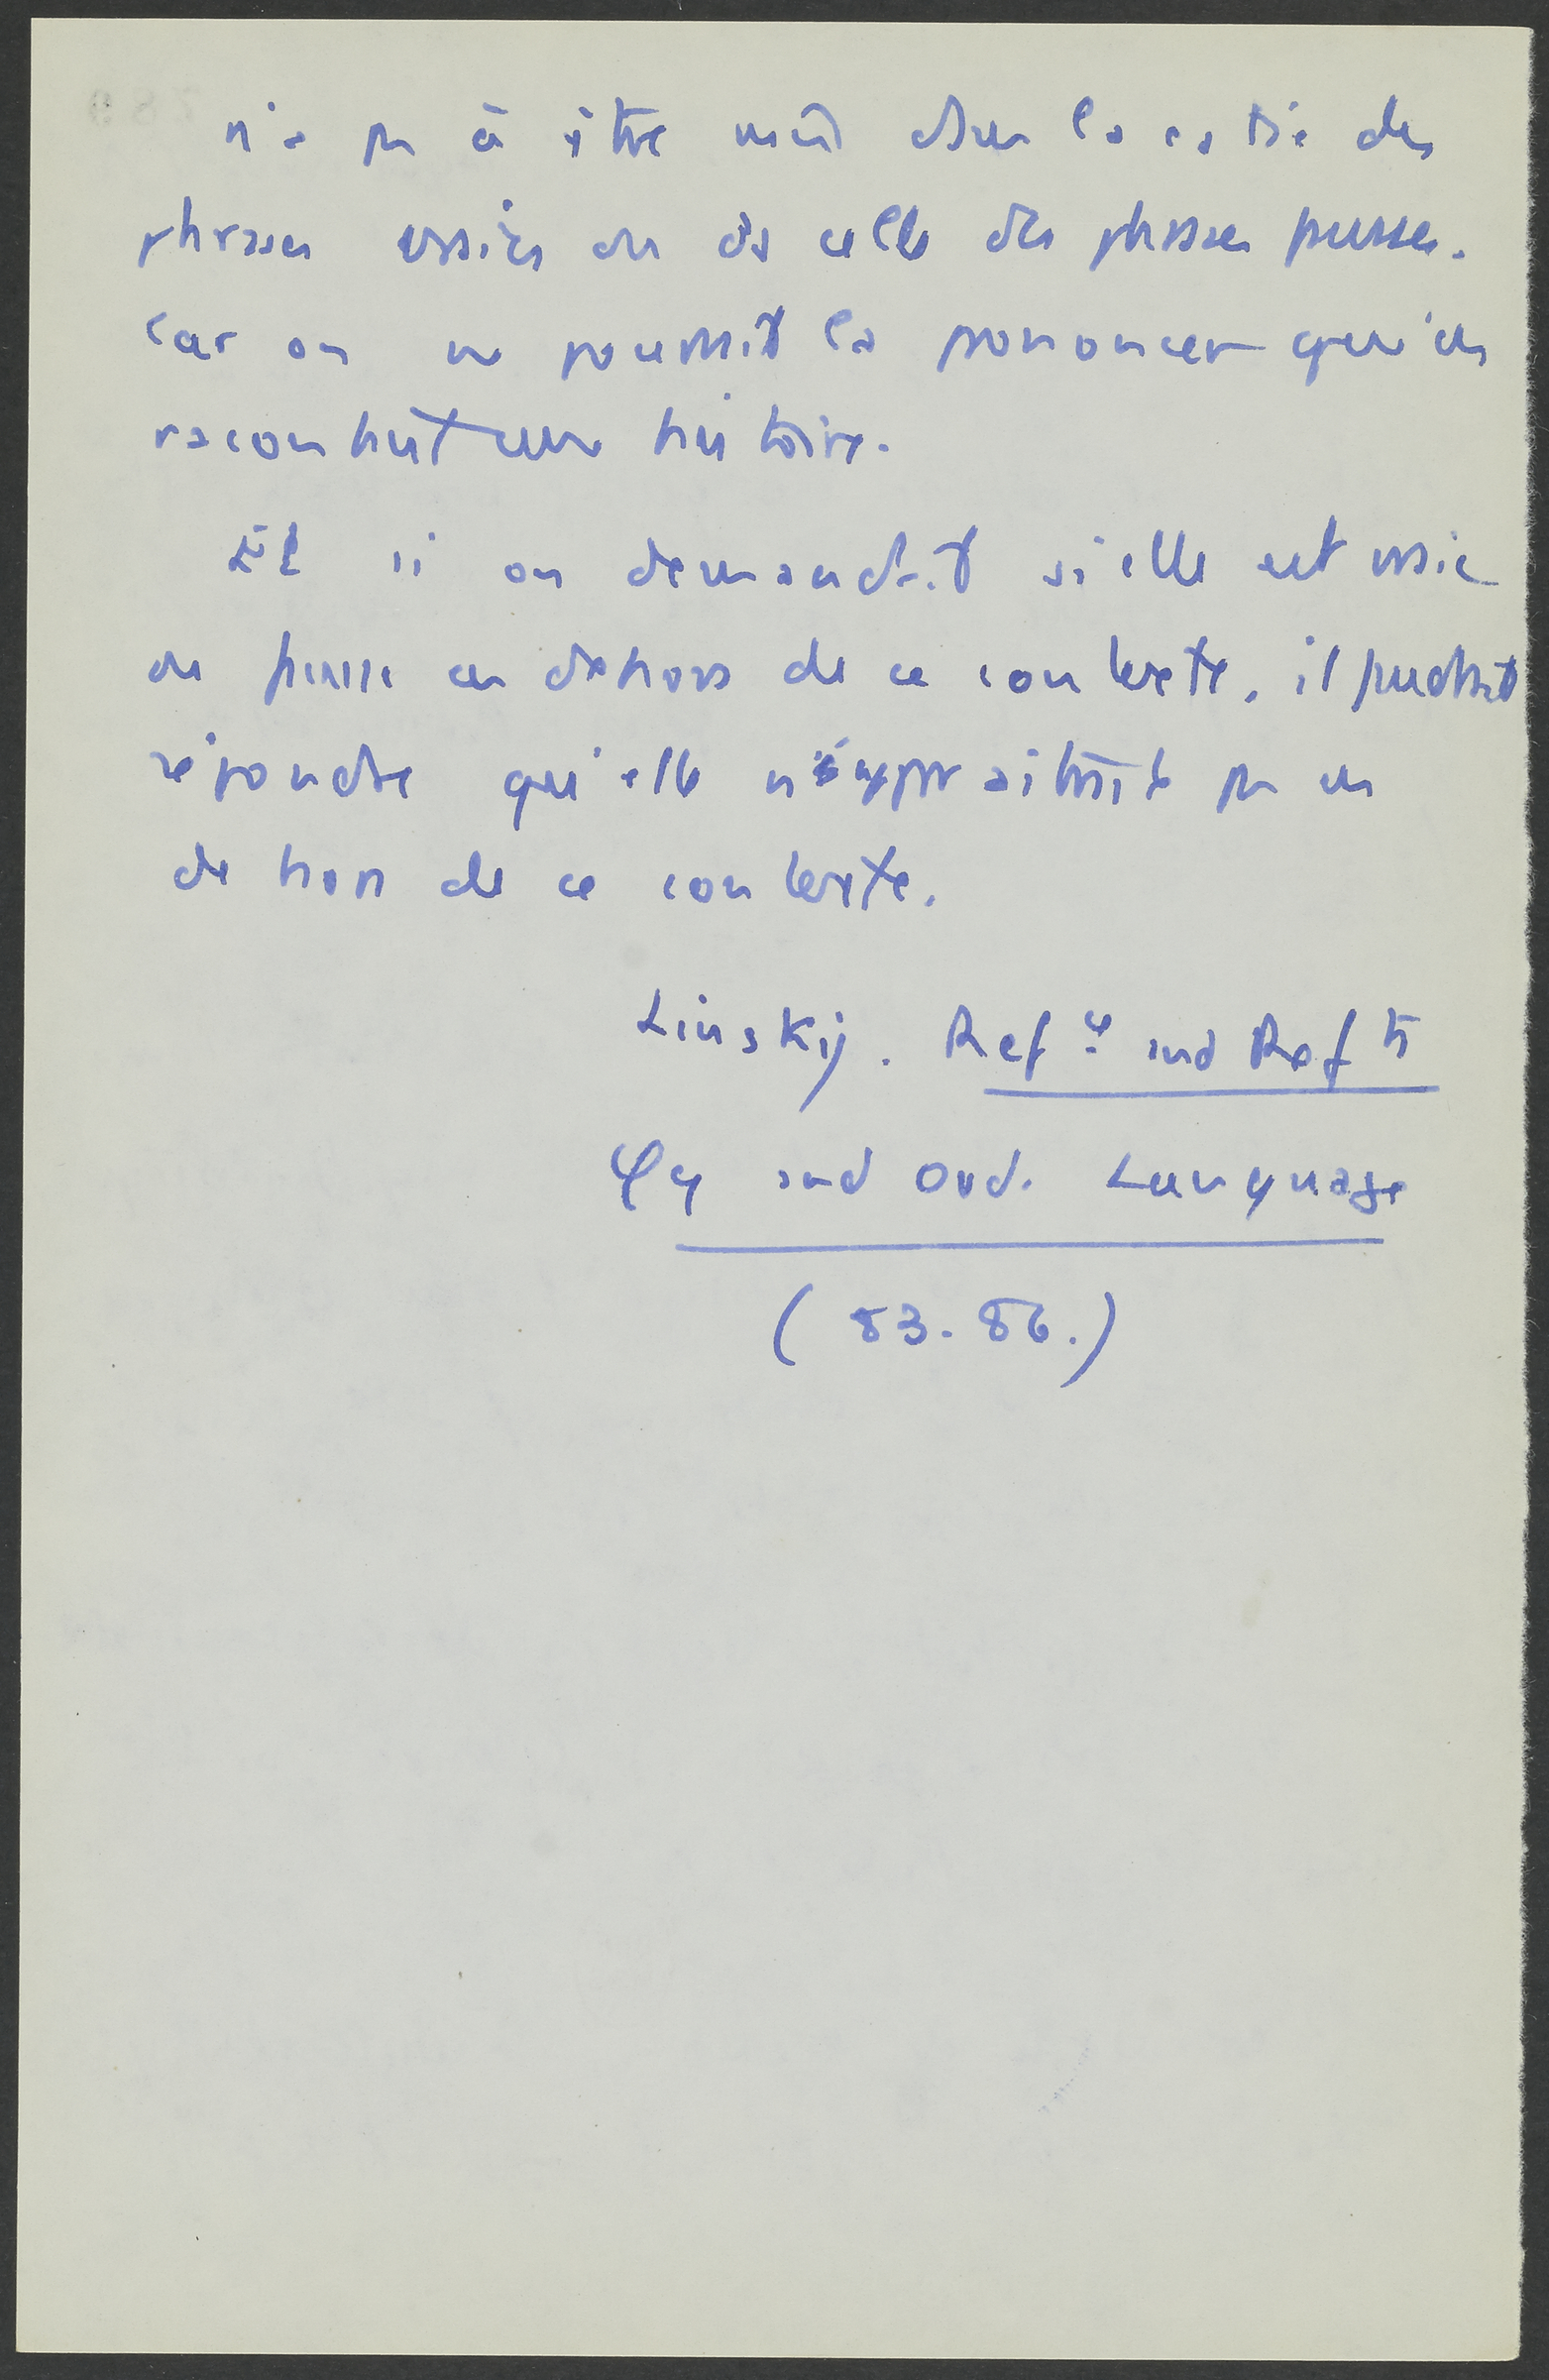 n'a pas à être mise dans la catégorie des
phrases vraies ou ds celle des phrases fausses.
Car on ne pourrait la prononcer qu'en
racontant une histoire.
Et si on demandait si elle est vraie
ou fausse en dehors de ce contexte, il faudrait
répondre qu'elle n'apparaîtrait pas en
dehors de ce contexte.
Linsky. Refce and Refts
φy and Ord. Language
(83-86.)